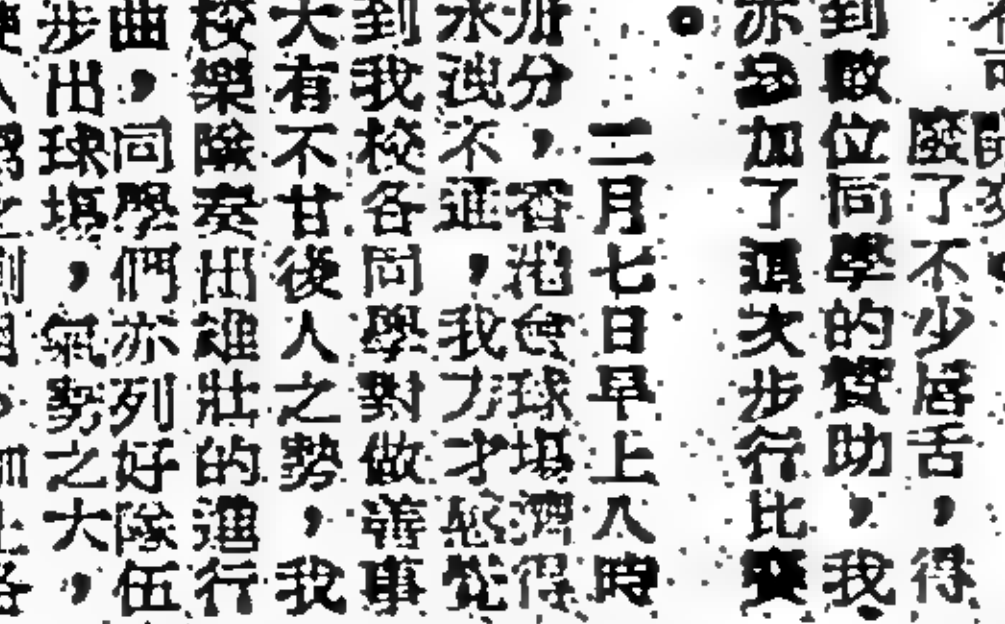 不可
廢了不少唇舌，得
到數位同學的贊助，我
亦參加了這次步行比賽
。
二月七日早上八時
卅分，香港會球場擠得
水洩不通，我方才感覺
到我校各同學對做善事
大有不甘後人之勢，我
校樂隊奏出雄壯的進行
曲，同學們亦列好隊伍
步出球場，氣勢之大，